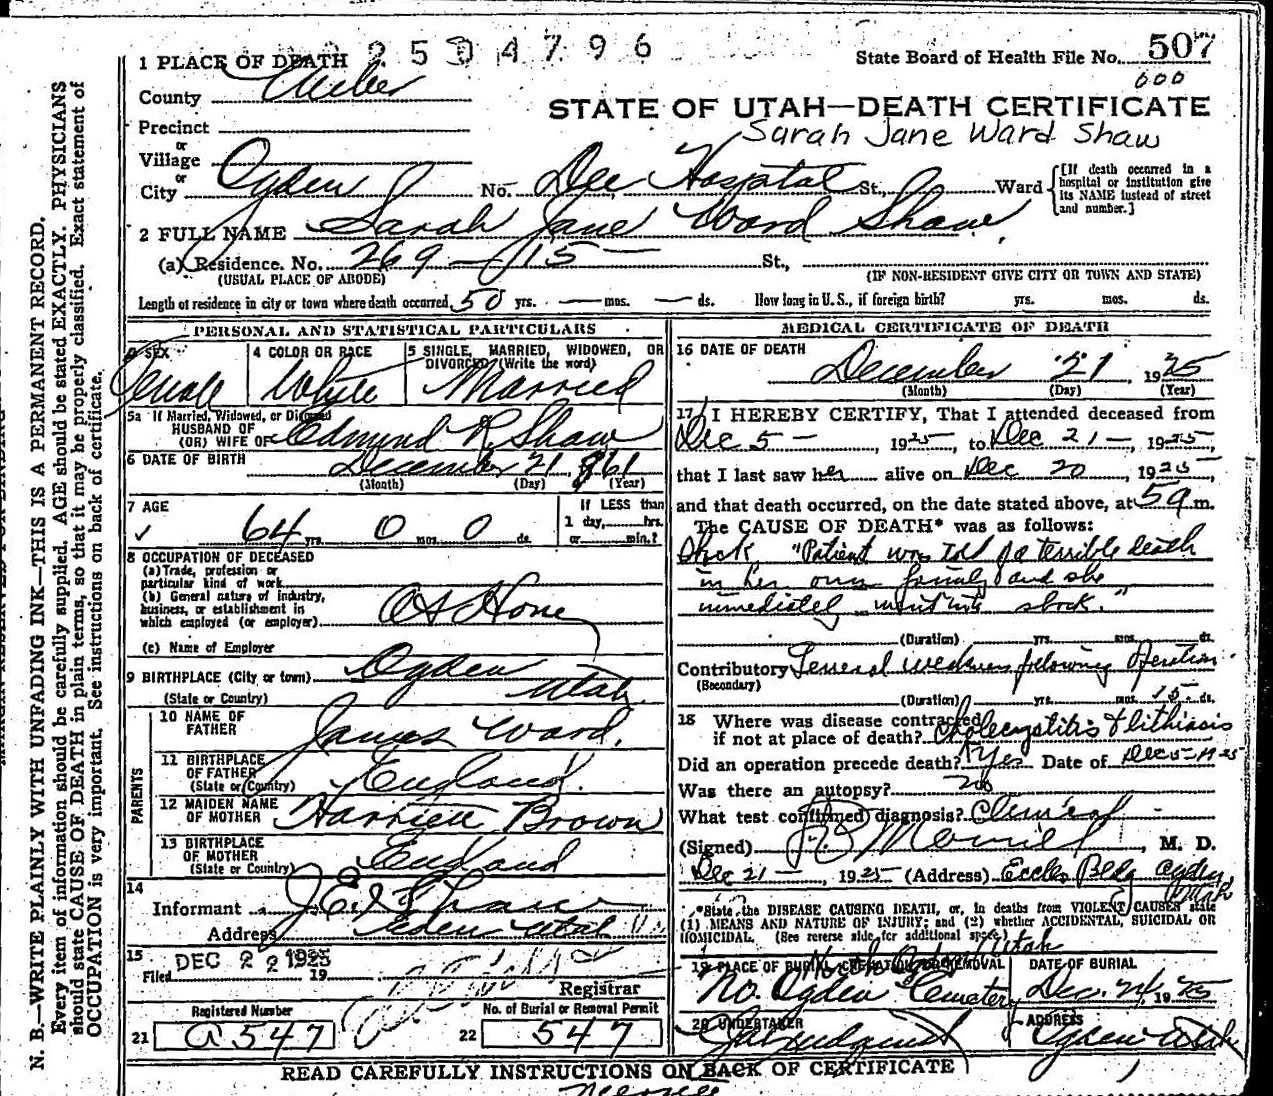 N. B.—WRITE PLAINLY WITH UNFADING INK—THIS IS A PERMANENT RECORD.
Every item of information should be carefully supplied. AGE should be stated EXACTLY. PHYSICIANS
should state CAUSE OF DEATH in plain terms, so that it may be properly classified. Exact statement of
OCCUPATION is very important. See instructions on back of certificate.
2504796
State Board of Health File No. 507
000
1 PLACE OF DEATH
County Weber
STATE OF UTAH—DEATH CERTIFICATE
Sarah Jane Ward Shaw
Precinct
or
Village
or
City Ogden No. Dee Hospital St., Ward
[If death occurred in a
hospital or institution give
its NAME instead of street
and number.]
2 FULL NAME Sarah Jane Ward Shaw
(a) Residence. No. 269 — 15 — St.,
(USUAL PLACE OF ABODE) (IF NON-RESIDENT GIVE CITY OR TOWN AND STATE)
Length of residence in city or town where death occurred 50 yrs. — mos. — ds. How long in U. S., if foreign birth? yrs. mos. ds.
PERSONAL AND STATISTICAL PARTICULARS
3 SEX Female
4 COLOR OR RACE White
5 SINGLE, MARRIED, WIDOWED, OR
DIVORCED (Write the word)
Married
5a If Married, Widowed, or Divorced
HUSBAND OF
(OR) WIFE OF Edmund R. Shaw
6 DATE OF BIRTH December 21 1861
(Month) (Day) (Year)
7 AGE 64 yrs. 0 mos. 0 ds.
If LESS than
1 day, hrs.
or min.?
8 OCCUPATION OF DECEASED
(a) Trade, profession or
particular kind of work
(b) General nature of industry,
business, or establishment in
which employed (or employer) At Home
(c) Name of Employer
9 BIRTHPLACE (City or town) Ogden
(State or Country) Utah
PARENTS
10 NAME OF
FATHER James Ward.
11 BIRTHPLACE
OF FATHER
(State or Country) England.
12 MAIDEN NAME
OF MOTHER Harriett Brown
13 BIRTHPLACE
OF MOTHER
(State or Country) England
14
Informant Shaw
Address Ogden Utah
15
Filed DEC 22 1925 19
Registrar
Registered Number
21 a547
No. of Burial or Removal Permit
22 547
MEDICAL CERTIFICATE OF DEATH
16 DATE OF DEATH
December 21, 1925
(Month) (Day) (Year)
17 I HEREBY CERTIFY, That I attended deceased from
Dec 5 — 1925, to Dec 21 —, 1925,
that I last saw her alive on Dec 20, 1925,
and that death occurred, on the date stated above, at 5 a m.
The CAUSE OF DEATH* was as follows:
Shock "Patient was told of a terrible death
in her own family and she
immediately went into shock."
(Duration) yrs. mos. ds.
Contributory General weakness following operation
(Secondary)
(Duration) yrs. mos. 15 ds.
18 Where was disease contracted
if not at place of death? Cholecystitis & lithiasis
Did an operation precede death? Yes Date of Dec 5-1925
Was there an autopsy? no
What test confirmed diagnosis? Clinical
(Signed) Merrill, M. D.
Dec 21 —, 1925 (Address) Eccles Bldg Ogden,
Utah
*State the DISEASE CAUSING DEATH, or, in deaths from VIOLENT CAUSES state
(1) MEANS AND NATURE OF INJURY; and (2) whether ACCIDENTAL, SUICIDAL OR
HOMICIDAL. (See reverse side for additional space.)
19 PLACE OF BURIAL, CREMATION, OR REMOVAL
North Ogden Utah
No. Ogden Cemetery
DATE OF BURIAL
Dec. 24, 1925
20 UNDERTAKER
Lindquist
ADDRESS
Ogden Utah
READ CAREFULLY INSTRUCTIONS ON BACK OF CERTIFICATE